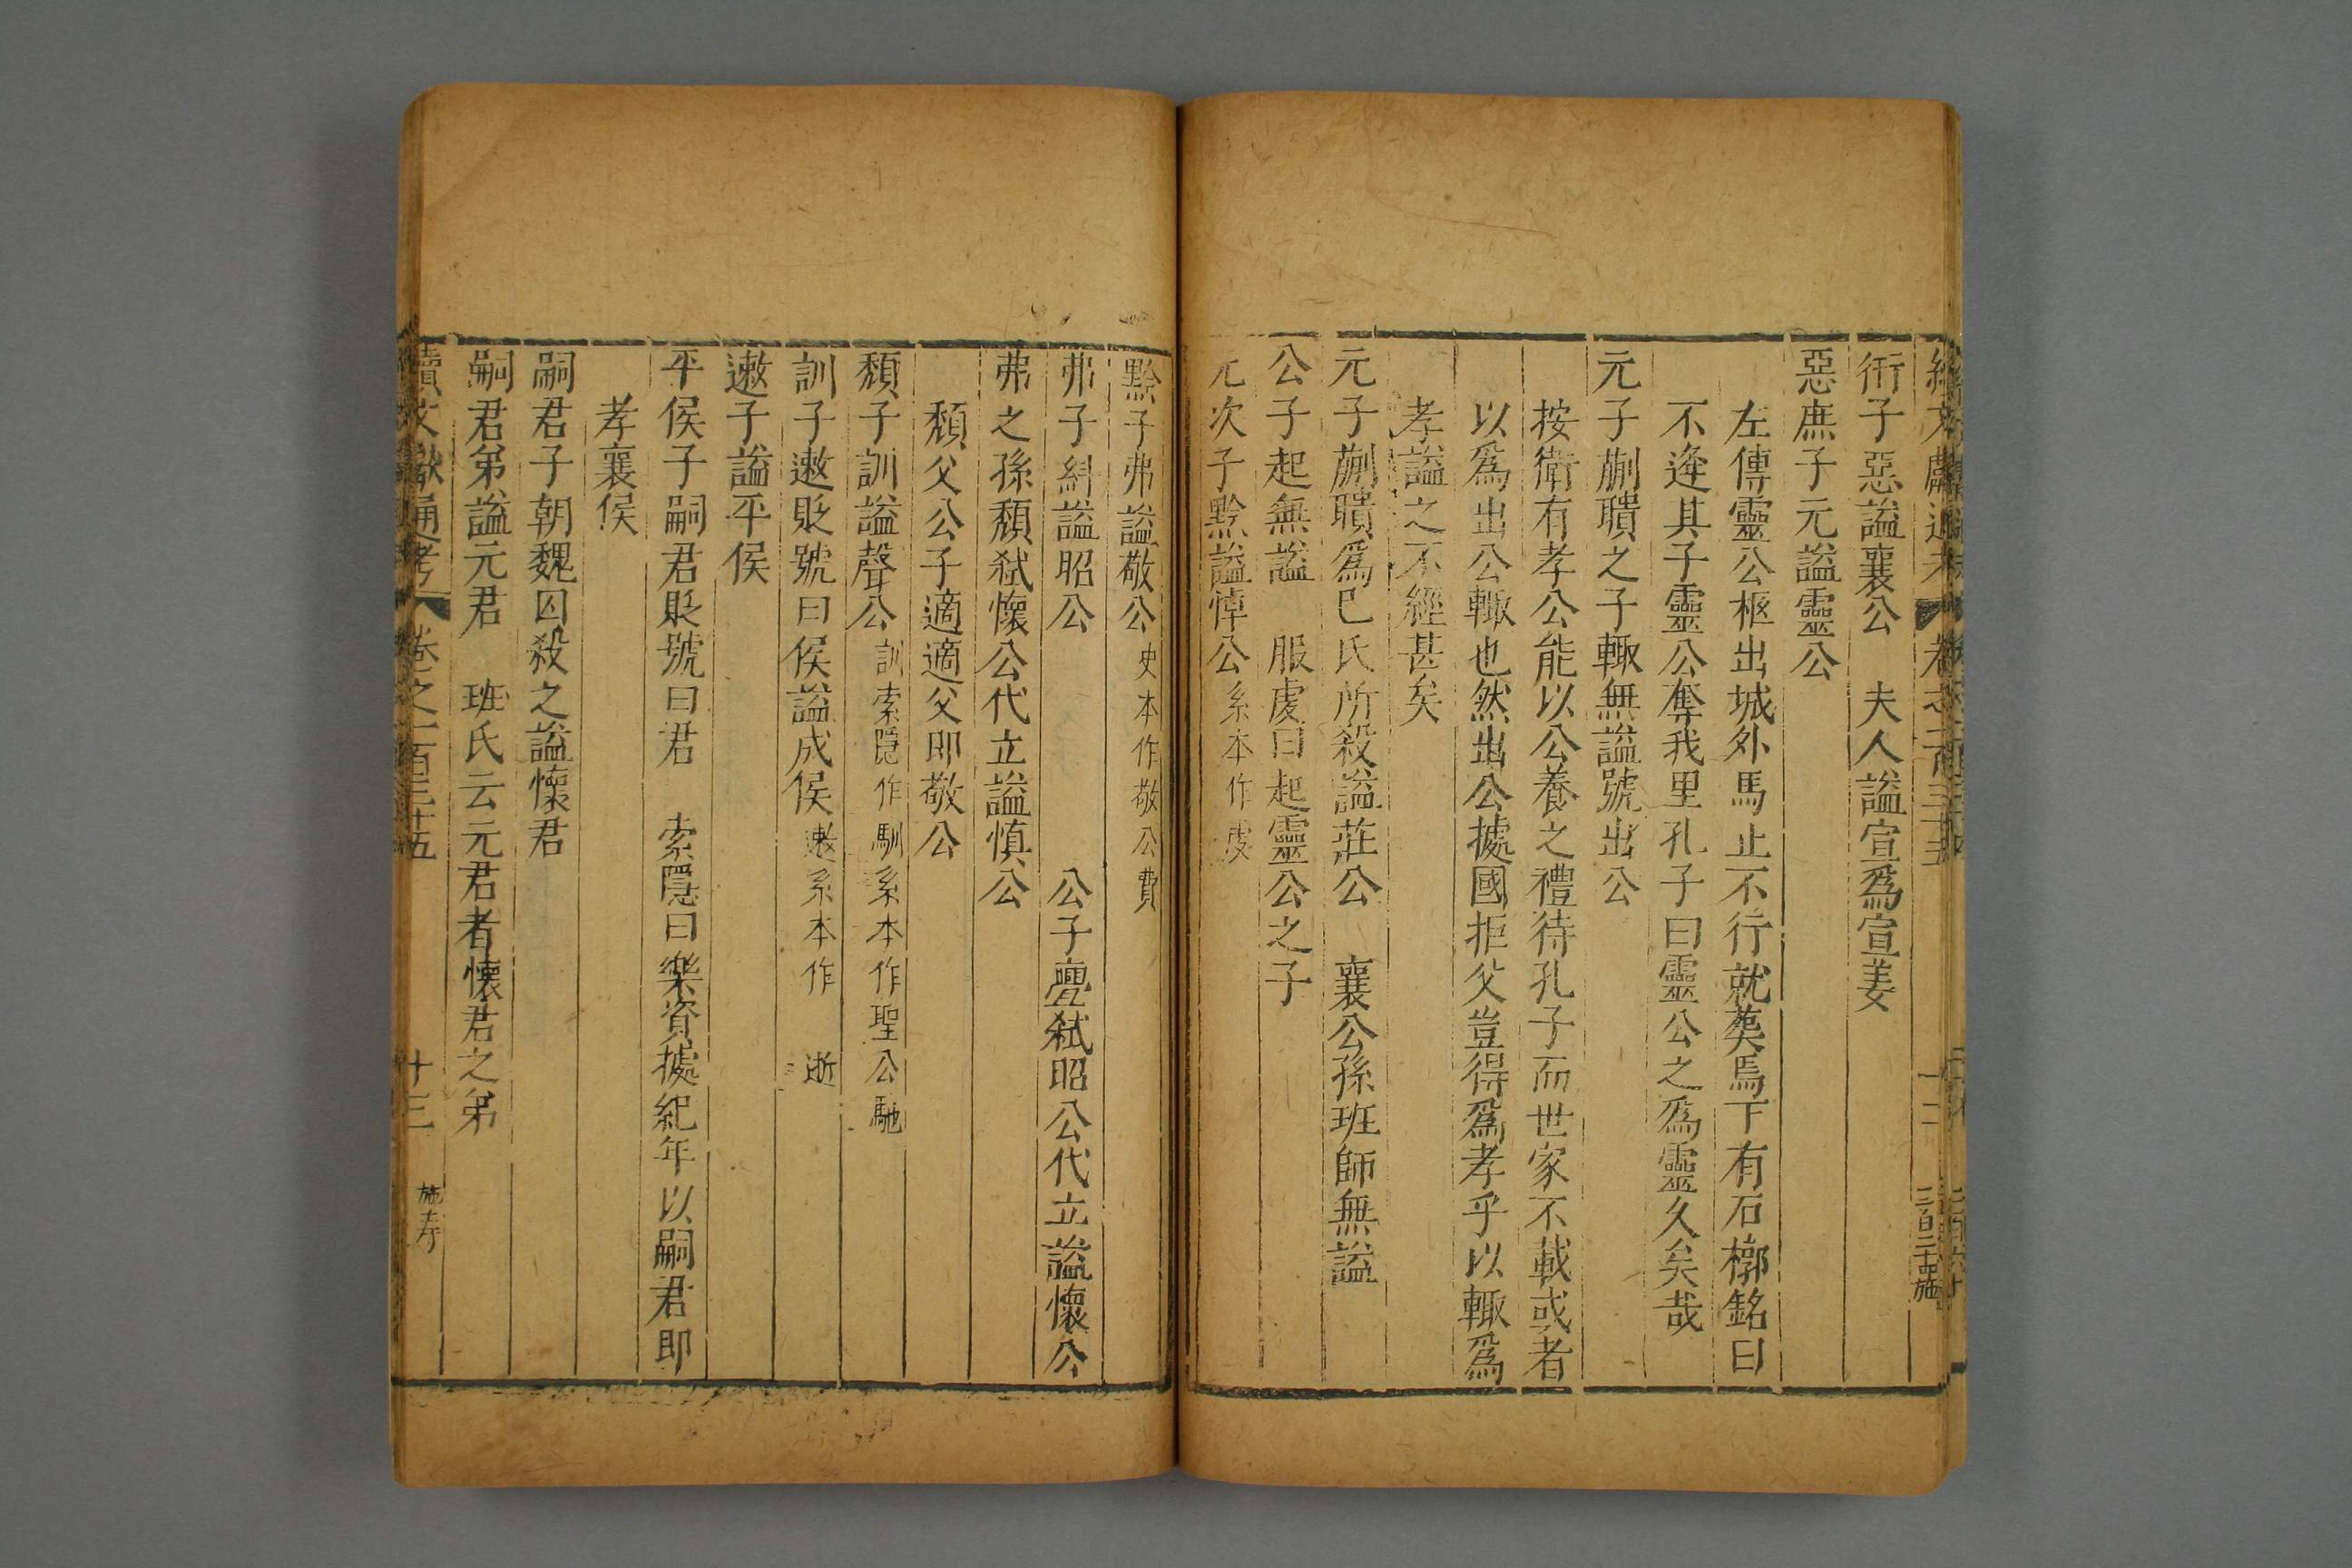 衎子惡謚襄公　夫人謚宣爲宣姜
惡庶子元謚靈公
左傳靈公柩出城外馬止不行就葬焉下有石槨銘曰
不逢其子靈公奪我里孔子曰靈公之爲靈久矣哉
元子蒯聵之子輙無謚號出公
按衛有孝公能以公養之禮待孔子而世家不載或者
以爲出公輙也然出公據國拒父豈得爲孝乎以輙爲
孝謚之不經甚矣
元子蒯聵爲巳氏所殺謚莊公　襄公孫班師無謚
公子起無謚　服虔曰起靈公之子
元次子黔謚悼公系本作虔
黔子弗謚敬公史本作敬公費
弗子糾謚昭公　公子亹弑昭公代立謚懷公
弗之孫頹弑懷公代立謚慎公
頹父公子適適父即敬公
頹子訓謚聲公訓索隱作馴系本作聖公馳
訓子遬貶號曰侯謚成侯遬系本作　逝
遬子謚平侯
平侯子嗣君貶號曰君　索隱曰樂資據紀年以嗣君即
孝襄侯
嗣君子朝魏囚殺之謚懷君
嗣君弟謚元君　班氏云元君者懷君之弟
續文獻通考　卷之一百三十五　十三　施寿